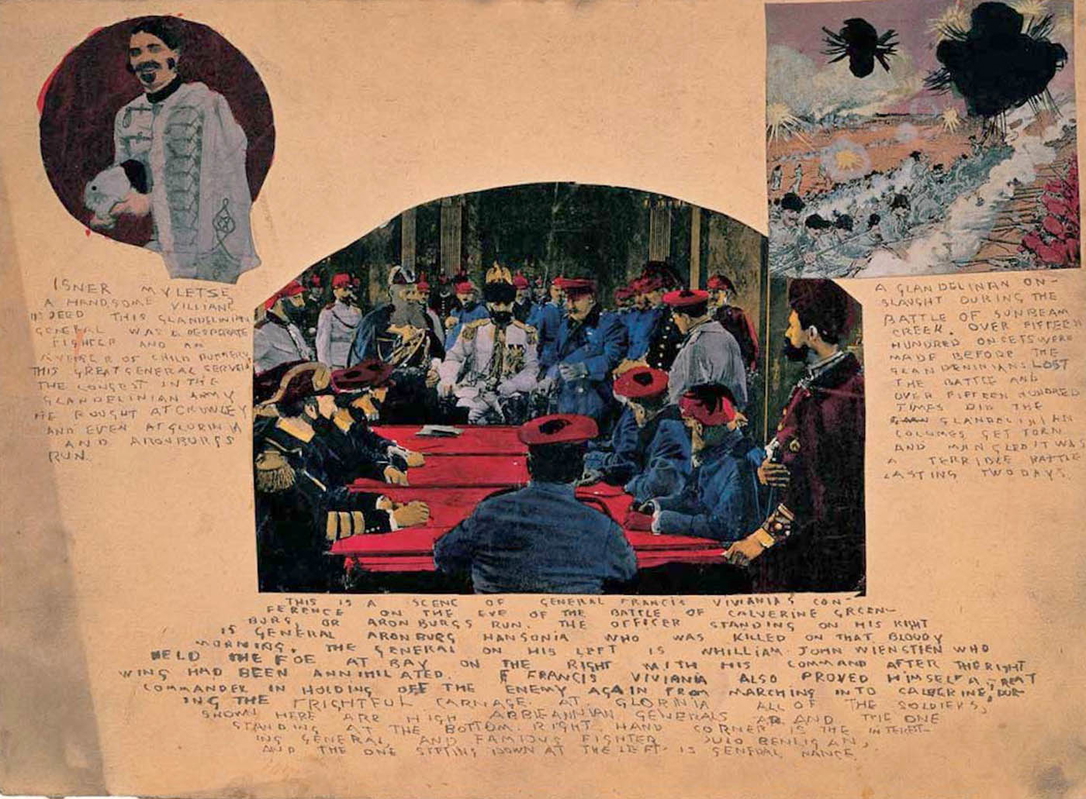 ISNER MYLETSE
A HANDSOME VILLIANE
INDEED THIS GLANDELINIAN
GENERAL WAS A DESPERATE
FIGHTER AND AN
AVENGER OF CHILD MURDERY
THIS GREAT GENERAL SERVED
THE LONGEST IN THE
GLANDELINIAN ARMY
HE FOUGHT AT
AND EVEN AT GLORINIA
AND ARONBURGS
RUN.
A GLANDELINIAN ON-
SLAUGHT DURING THE
BATTLE OF SUNBEAM
CREEK. OVER FIFTEEN
HUNDRED ONSETS WERE
MADE BEFORE THE
LOST
THE BATTLE AND
OVER FIFTEEN HUNDRED
TIMES DID THE
GLANDELINIAN
COLUMNS GET TORN
AND MANGLED IT WAS
A TERRIBLE BATTLE
LASTING TWO DAYS.
THIS IS A SCENE OF GENERAL FRANCIS VIVIANIA'S CON-
FERENCE ON THE EVE OF THE BATTLE OF CALVERINE GREEN-
BURG, OR ARONBURGS RUN. THE OFFICER STANDING ON HIS RIGHT
IS GENERAL ARONBURG HANSONIA WHO WAS KILLED ON THAT BLOODY
MORNING. THE GENERAL ON HIS LEFT IS WHILLIAM JOHN WIENSTIEN WHO
HELD THE FOE AT BAY ON THE RIGHT WITH HIS COMMAND AFTER THE RIGHT
WING HAD BEEN ANNIHILATED. FRANCIS VIVIANIA ALSO PROVED HIMSELF A GREAT
COMMANDER IN HOLDING OFF THE ENEMY AGAIN FROM MARCHING INTO CALVERINE, DUR-
ING THE FRIGHTFUL CARNAGE AT GLORINIA ALL OF THE SOLDIERS
SHOWN HERE ARE HIGH ABBIEANNIAN GENERALS AND THE ONE
STANDING AT THE BOTTOM RIGHT HAND CORNER IS THE INTEREST-
ING GENERAL AND FAMOUS FIGHTER
AND THE ONE SITTING DOWN AT THE LEFT IS GENERAL